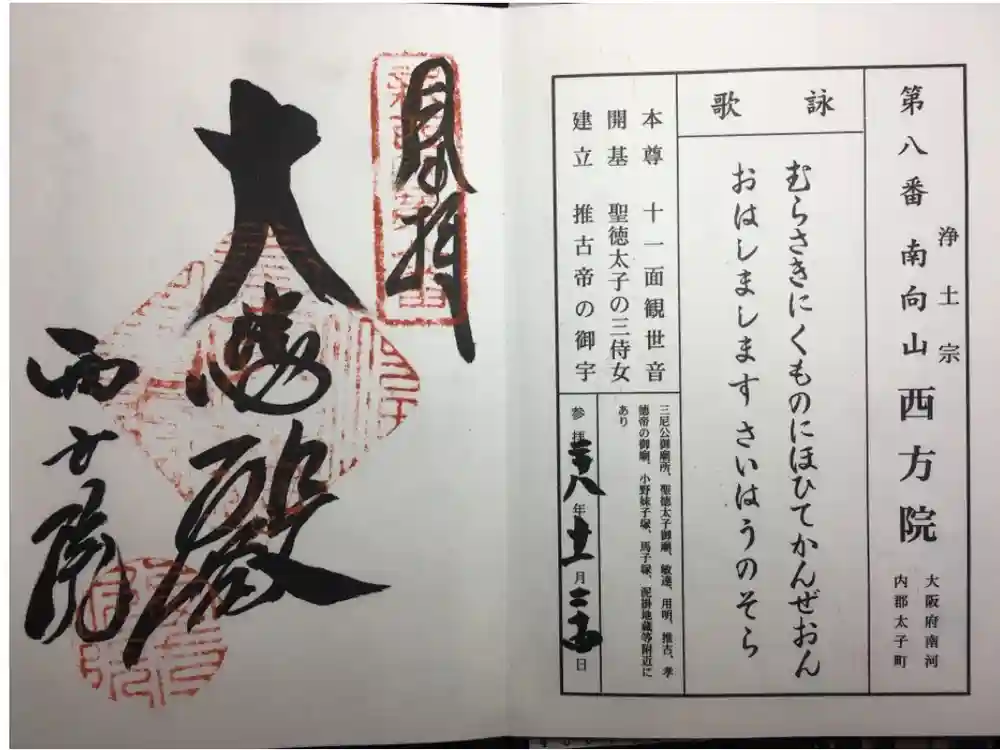 浄土宗
第八番 南向山 西方院
大阪府南河
内郡太子町
詠歌
むらさきにくものにほひてかんぜおん
おはしましますさいはうのそら
本尊 十一面観世音
開基 聖徳太子の三侍女
建立 推古帝の御宇
三尼公御廟所、聖徳太子御廟、敏達、用明、推古、孝
徳帝の御廟、小野妹子塚、馬子塚、泥掛地蔵等附近に
あり
参拝 八年十一月 日
奉拝
大悲殿
西方院